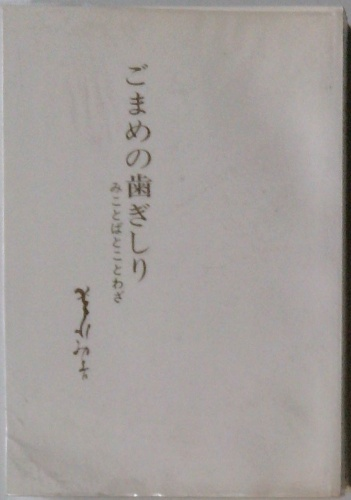 ごまめの歯ぎしり
みことばとことわざ